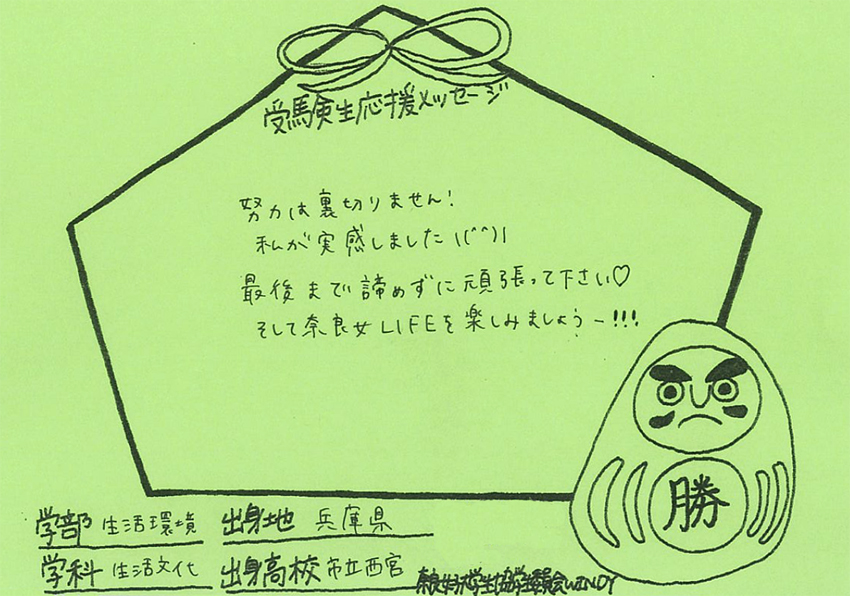 受験生応援メッセージ
努力は裏切りません!
私が実感しました \(^^)|
最後まで諦めずに頑張って下さい♡
そして奈良女LIFEを楽しみましょうー!!!
勝
学部 生活環境 出身地 兵庫県
学科 生活文化 出身高校 市立西宮
奈良女子大学生協学生委員会WINDY